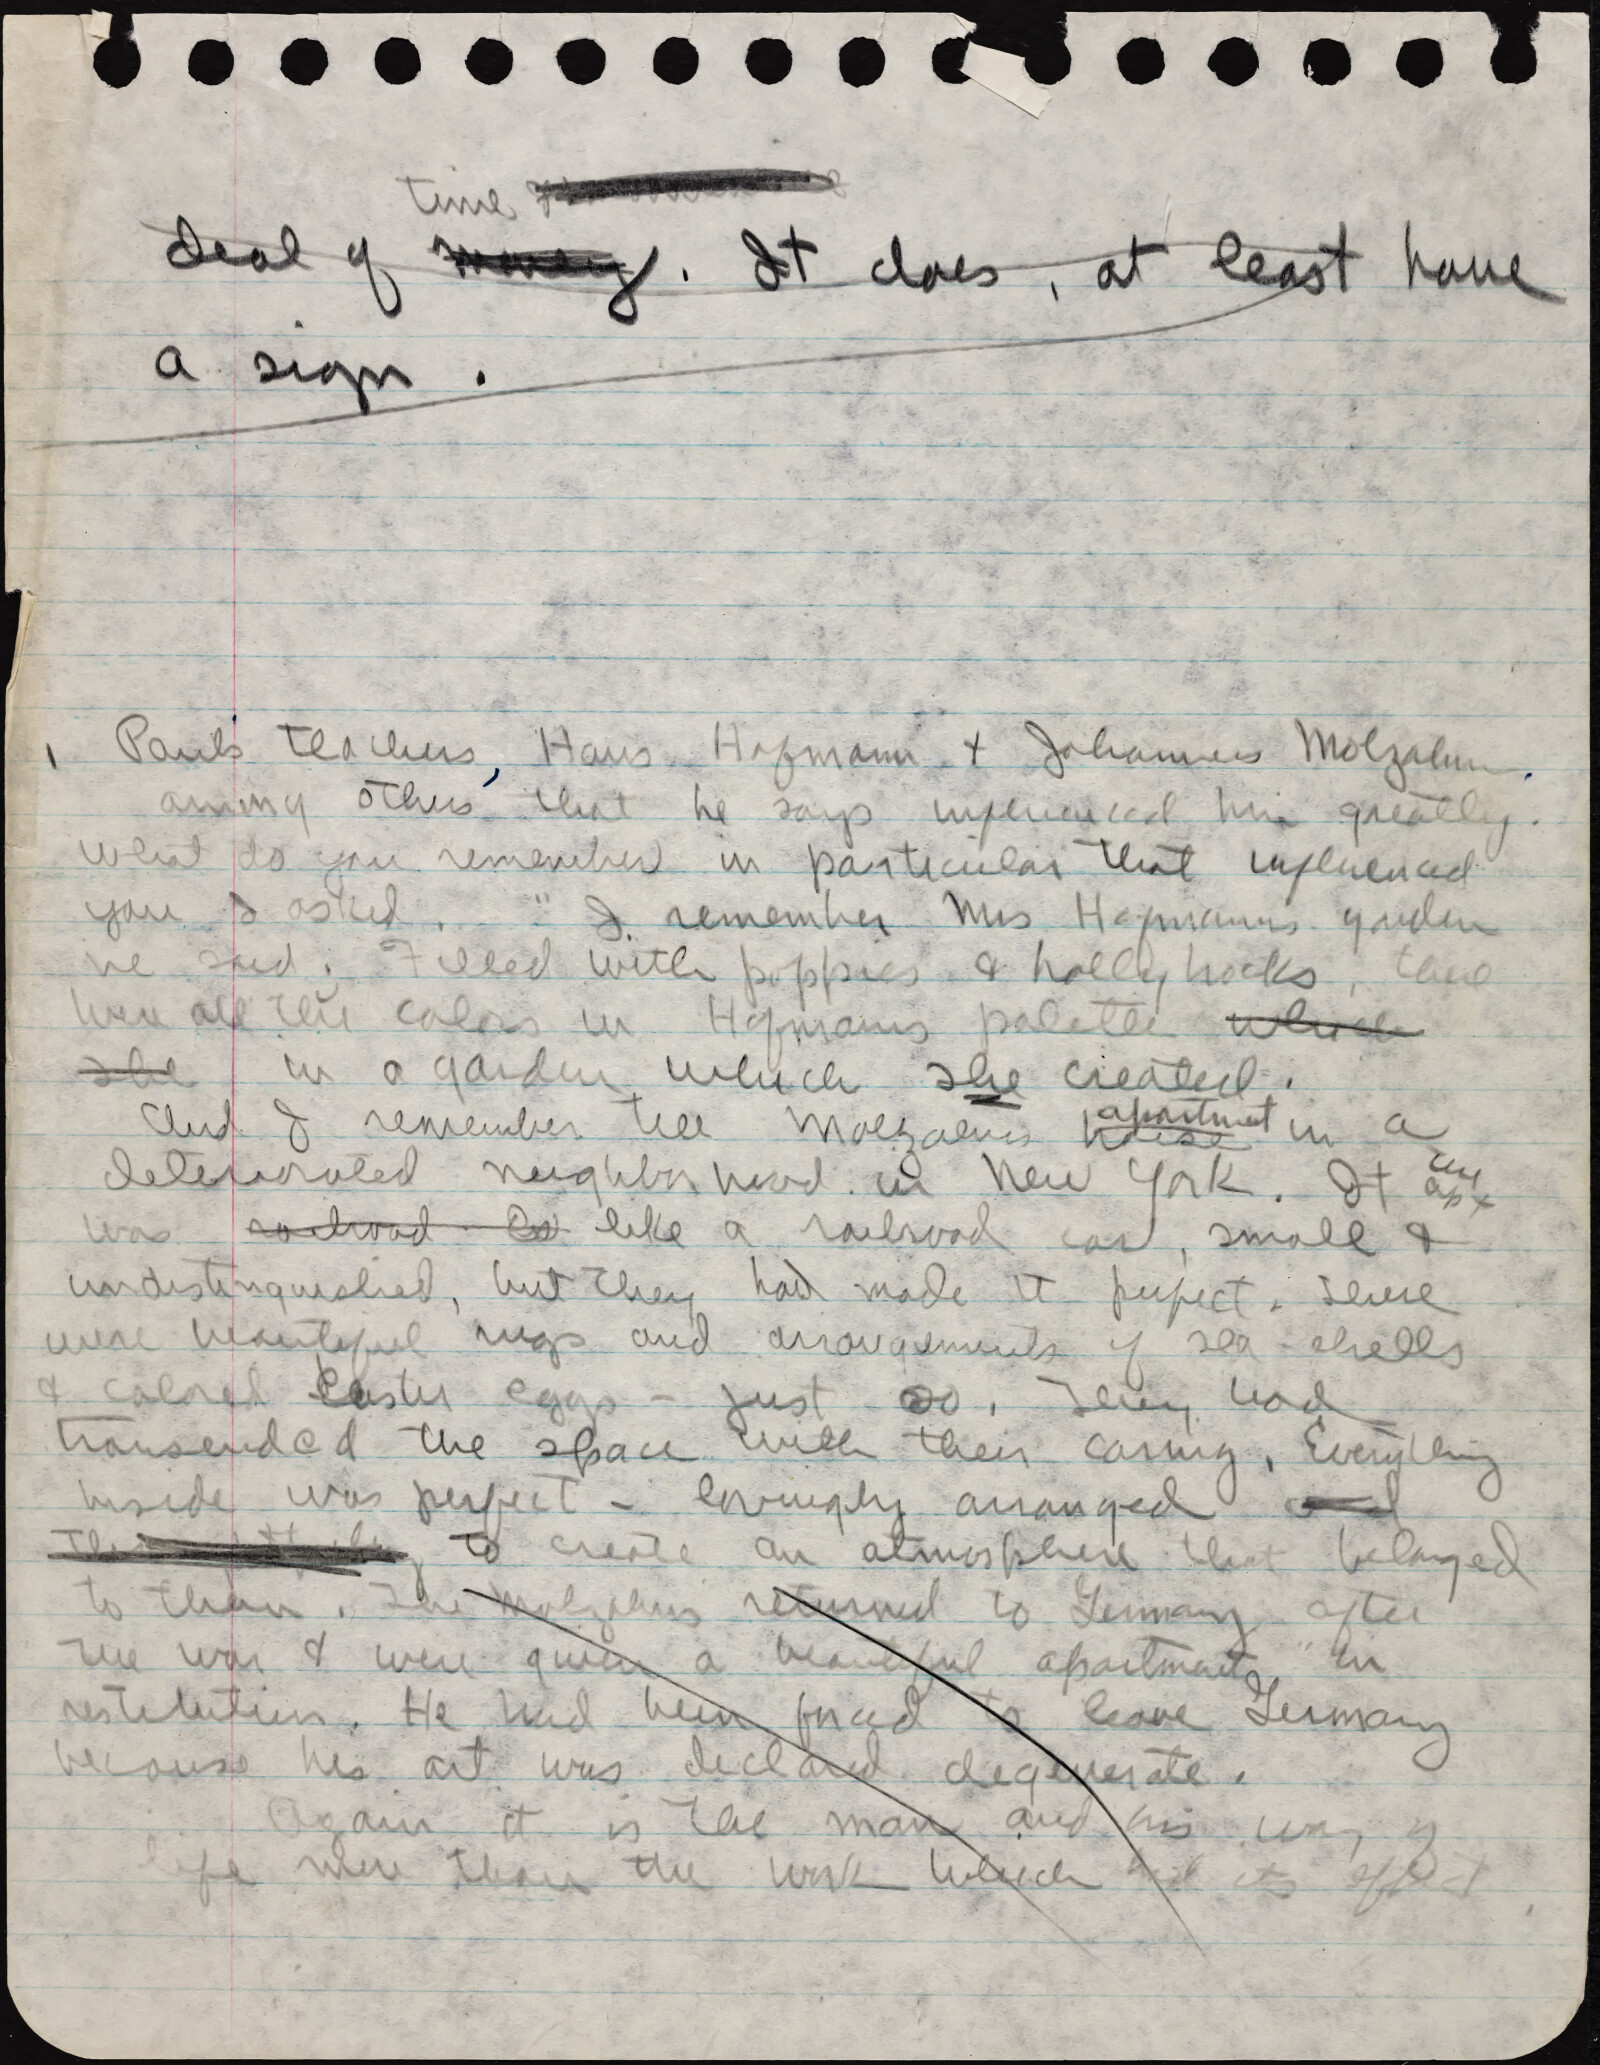 time
deal of money. It does, at least have
a sign.
1 Paul's teachers, Hans Hofmann + Johannes Molzahn,
among others that he says influenced him greatly.
What do you remember in particular that influenced
you I asked. "I remember Mrs Hofmanns garden
he said. Filled with poppies & hollyhocks, there
were all the colors in Hofmans palette which
she in a garden which she created.
And I remember the Molzahns house
apartment in a
deteriorated neighborhood in New York. It
apt
was railroad like a railroad car, small &
undistinguished, but they had made it perfect. There
were beautiful rugs and arrangements of sea-shells
& colored Easter eggs - just so. They had
transended the space with their caring. Everything
inside was perfect - lovingly arranged and
to create an atmosphere that belonged
to them. The Molzahns returned to Germany after
the war & were given a beautiful apartment" in
restitution. He had been forced to leave Germany
because his art was declared degenerate.
Again it is the man and his way of
life more than the work which had its effect.